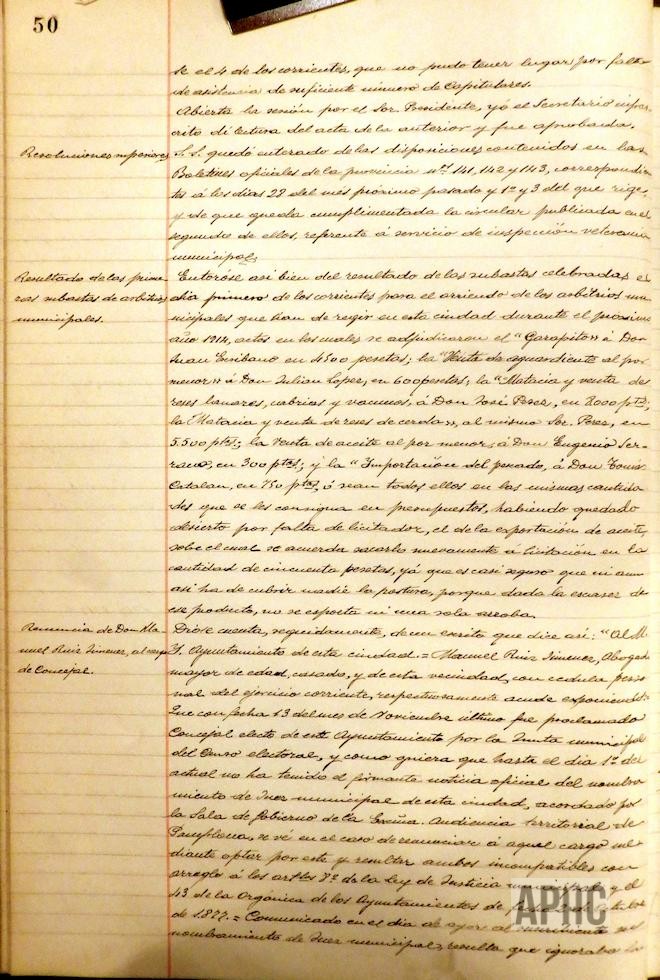 50
se el 4 de los corrientes, que no pudo tener lugar por falta
de asistencia de suficiente número de Capitulares.
Abierta la sesión por el Sor. Presidente, yó el Secretario infras-
crito di lectura del acta de la anterior y fue aprobada.
Resoluciones superiores
S. S. quedó enterado de las disposiciones contenidas en los
Boletines oficiales de la provincia nºs 141, 142 y 143, correspondien-
tes á los dias 28 del mes próximo pasado y 1º y 3 del que rige,
y de que queda cumplimentada la circular publicada en el
segundo de ellos, referente á servicio de inspección veterinaria
municipal.
Resultado de las prime-
ras subastas de arbitrios
municipales.
Enteróse asi bien del resultado de las subastas celebradas el
dia primero de los corrientes para el arriendo de los arbitrios mu-
nicipales que han de regir en esta ciudad durante el próximo
año 1914, actos en los cuales se adjudicaron el "Garapito" á Don
Juan Escribano en 4500 pesetas; la "Venta de aguardiente al por
menor" á Don Julian Lopez, en 600 pesetas; la "Matacia y venta de
reses lanares, cabrias y vacunos, á Don José Perez, en 8000 ptas;
la Matacia y venta de reses de cerda", al mismo Sor. Perez, en
5.500 ptas; la Venta de aceite al por menor, á Don Eugenio Ser-
rano, en 300 ptas; y la "Importación del pescado, á Don Tomás
Catalan, en 750 ptas, ó sean todos ellos en las mismas cantida-
des que se les consigna en presupuestos, habiendo quedado
desierto por falta de licitador, el de la exportación de aceite,
sobre el cual se acuerda sacarlo nuevamente á licitación en la
cantidad de cincuenta pesetas, yá que es casi seguro que ni aun
asi ha de cubrir nadie la postura, porque dada la escasez de
ese producto, no se exporta ni una sola arroba.
Renuncia de Don Ma-
nuel Ruiz Jimenez, al cargo
de Concejal.
Dióse cuenta, seguidamente, de un escrito que dice asi: "Al M.
I. Ayuntamiento de esta ciudad.= Manuel Ruiz Jimenez, Abogado
mayor de edad, casado, y de esta vecindad, con cedula perso-
nal del ejercicio corriente, respetuosamente acude exponiendo:
Que con fecha 13 del mes de Noviembre último fue proclamado
Concejal electo de este Ayuntamiento por la Junta municipal
del Censo electoral, y como quiera que hasta el dia 1º del
actual no ha tenido el firmante noticia oficial del nombra-
miento de Juez municipal de esta ciudad, acordado por
la Sala de Gobierno de la Excma. Audiencia territorial de
Pamplona, se vé en el caso de renunciar á aquel cargo me-
diante optar por este y resultar ambos incompatibles con
arreglo á los artlos 7º de la Ley de Justicia municipal y el
43 de la Orgánica de los Ayuntamientos de
de 1.877.= Comunicado en el dia de ayer al su
nombramiento de Juez municipal, resulta que ignoraba los
APHC